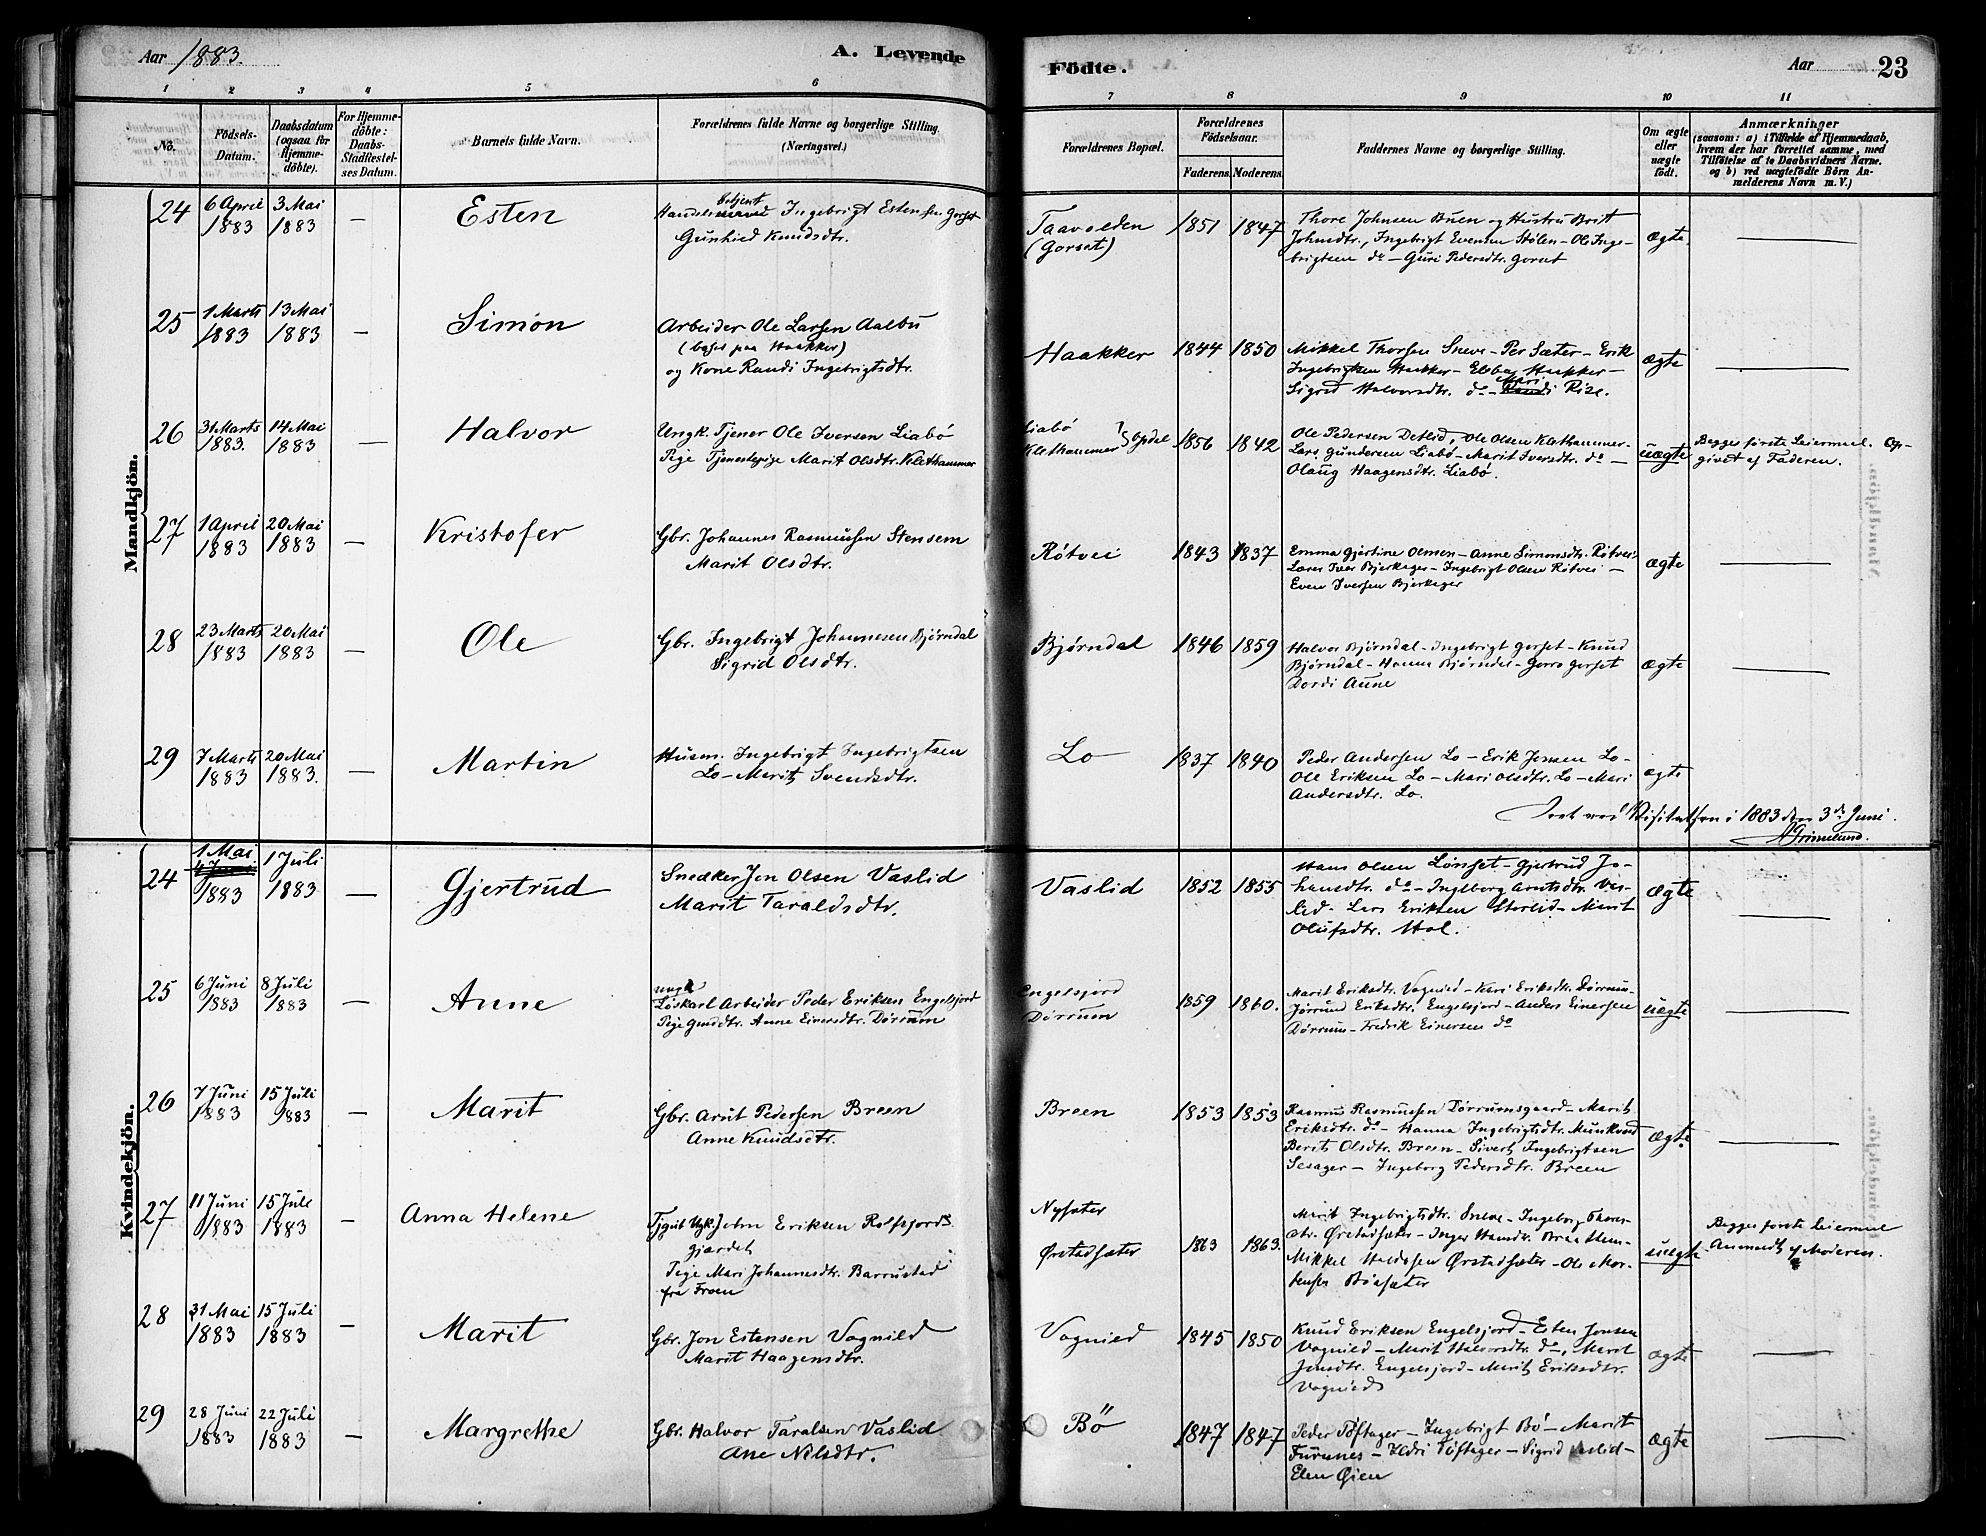 Aar 1883.
A. Levende
Födte.
Aar
23
1 2 3 4 5 6 7 8 9 10 11
No.
Födsels-Datum.
Daabsdatum (ogsaa for Hjemme-döbte).
For Hjemme-döbte: Daabs-Stadfæstel-ses Datum.
Barnets fulde Navn.
Forældrenes fulde Navne og borgerlige Stilling. (Næringsvei.)
Forældrenes Bopæl.
Forældrenes Födselsaar.
Faderens. Moderens.
Faddernes Navne og borgerlige Stilling.
Om ægte eller uægte födt.
Anmærkninger
(saasom: a) i Tilfælde af Hjemmedaab, hvem der har forrettet samme, med Tilföielse af to Daabsvidners Navne. og b) ved uægtefödte Börn An-melderens Navn m. V.)
Mandkjön.
24 6 April 1883 3 Mai 1883 — Esten
Handels betjent Ingebrigt Estensen Gorset
Gunhild Knudsdtr.
Taavolden (Gorset) 1851 1847
Thore Johnsen Buen og Hustru Brit
Johnsdtr., Ingebrigt Evensen Stølen – Ole Inge-
brigtsen do – Guri Pedersdtr. Gorset
ægte —
25 1 Marts 1883 13 Mai 1883 — Simon
Arbeider Ole Larsen Aalbu
(bosat paa Haakker)
og Kone Randi Ingebrigtsdtr.
Haakker 1844 1850
Mikkel Thorsen Sneve – Per Sæter – Erik
Ingebrigtsen Haakker – Haakker –
Sigrid Halvorsdtr. do – Mari Rise.
ægte —
26 31 Marts 1883. 14 Mai 1883 — Halvor
Ungk. Tjener Ole Iversen Liabø
Pige Tjenestepige Marit Olsdtr. Klethammer
Liabø
Klethammer Opdal 1856 1842
Ole Pedersen Detlid, Ole Olsen Klethammer –
Lars Gundersen Liabø – Marit Iversdtr. do –
Olaug Haagensdtr. Liabø.
uægte
Begges første Leiermaal. Op-
givet af Faderen.
27 1 April 1883 20 Mai 1883 — Kristofer
Gbr. Johannes Rasmussen Stensem
Marit Olsdtr.
Røtvei 1843 1837
Emma Gjertine Olsen – Anne Simonsdtr. Røtvei –
Lærer Iver Bjerkager – Ingebrigt Olsen Røtvei –
Even Iversen Bjerkager
ægte —
28 23 Marts 1883 20 Mai 1883 — Ole
Gbr. Ingebrigt Johannesen Bjørndal
Sigrid Olsdtr.
Bjørndal 1846 1859
Halvor Bjørndal – Ingebrigt Gorset – Knud
Bjørndal – Hanna Bjørndal – Gorset
Dordi Aune
ægte —
29 7 Marts 1883 20 Mai 1883. — Martin
Husm. Ingebrigt Ingebrigtsen
Lo – Marit Svendsdtr.
Lo 1837 1840
Peder Andersen Lo – Erik Jonsen Lo –
Ole Eriksen Lo – Mari Olsdtr. Lo – Mari
Andersdtr. Lo.
ægte
ved Visitatsen i 1883 den 3de Juni.
Grimelund.
Kvindekjön.
24 1 Mai 1883 1 Juli 1883 — Gjertrud
Snedker Jon Olsen Vaslid
Marit Taraldsdtr.
Vaslid 1852 1855
Hans Olsen Lønset – Gjertrud Jo-
hansdtr. do – Ingeborg Arntsdtr. Vas-
lid – Lars Eriksen Storlid – Marit
Olufsdtr. Hol.
ægte —
25 6 Juni 1883 8 Juli 1883 — Anne
ungk
Løskarl Arbeider Peder Eriksen Engelsjord
Pige Gmddtr. Anne Einersdtr. Dørrum
Engelsjord
Dørrum 1859 1860.
Marit Eriksdtr. Vognild – Kari Eriksdtr. Dørrum –
Jørrund Eriksdtr. Engelsjord – Anders Einersen
Dørrum – Fredrik Einersen do
uægte —
26 7 Juni 1883 15 Juli 1883 — Marit
Gbr. Arnt Pedersen Breen
Anne Knudsdtr.
Breen 1853 1853
Rasmus Rasmussen Dørrumsgaard – Marit
Eriksdtr. do – Hanna Ingebrigtsdtr. Munkvold
Berit Olsdtr. Breen – Sivert Ingebrigtsen
Sesager – Ingeborg Pedersdtr. Breen
ægte —
27 11 Juni 1883 15 Juli 1883 — Anna Helene
Tjgut Ugk. John Eriksen Rolfsjords
gjærdet
Pige Mari Johannesdtr. Barrustad
fra Froen
Nysæter
Ørstadsæter 1863 1863.
Marit Ingebrigtsdtr. Sneve – Ingeborg Thores-
dtr. Ørstadsæter – Inger
Mikkel Ørstadsæter – Ole Mor-
tensen Bøasæter
uægte
Begges første Leiermaal
Anmeldt af Moderen.
28 31 Mai 1883 15 Juli 1883 — Marit
Gbr. Jon Estensen Vognild
Marit Haagensdtr.
Vognild 1845 1850
Knud Eriksen Engelsjord – Esten Jonsen
Vognild – Marit Halvorsdtr. do, Marit
Jonsdtr. Engelsjord – Marit Eriksdtr.
Vognild
ægte —
29 28 Juni 1883 22 Juli 1883 — Margrethe
Gbr. Halvor Taralsen Vaslid
Ane Nilsdtr.
Bö 1847 1847
Peder Tøftager – Ingebrigt Bö – Marit
Furunes – Tøftager – Sigrid Vaslid –
Elen Øien
ægte —